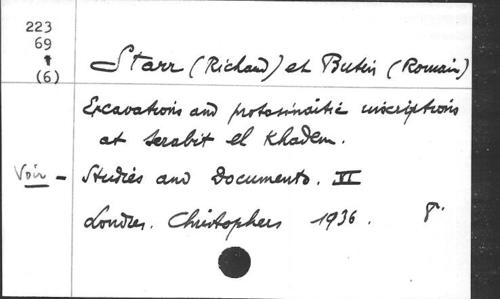 223
69
(6)
Starr (Richard) et Butin (Romain)
Excavations and protosinaitic inscriptions
at Serabit el Khadem.
Voir - Studies and Documents. VI
Londres. Christophers 1936. 8°.